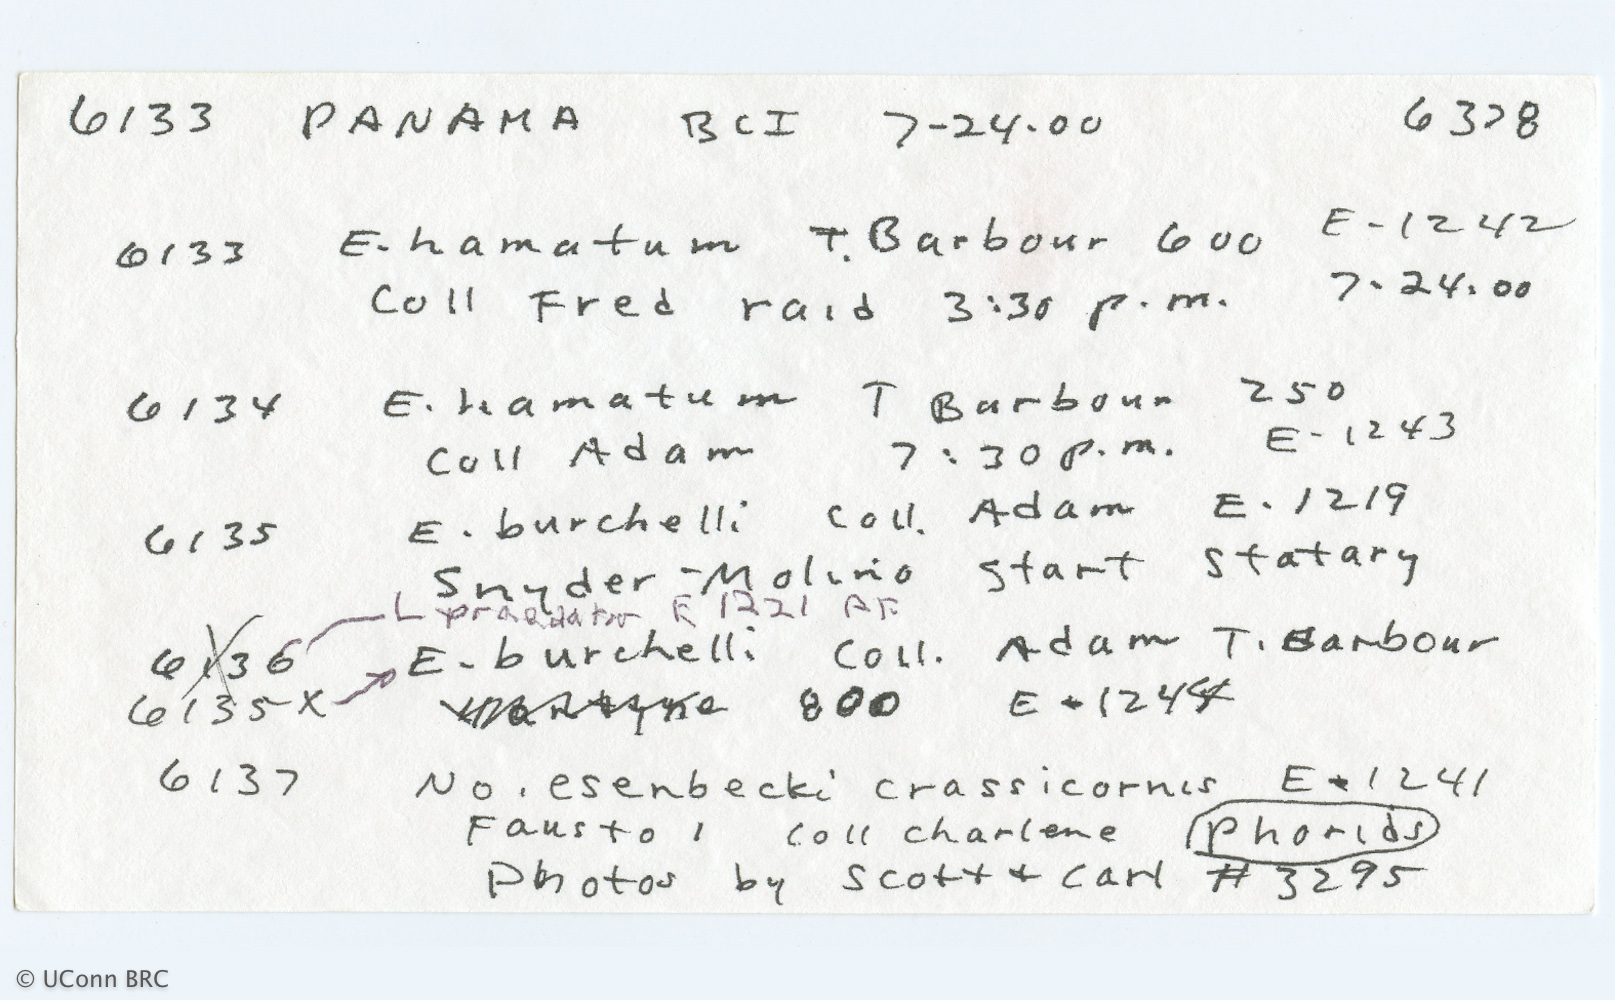 6133 PANAMA BCI 7-24.00 6378
6133 E. hamatum T. Barbour 600 E-1242
Coll Fred raid 3:30 p.m. 7.24.00
6134 E. hamatum T Barbour 250
Coll Adam 7:30 p.m. E-1243
6135 E. burchelli Coll. Adam E. 1219
Snyder-Molino start statary
L praedator E 1221
6136 E. burchelli Coll. Adam T. Barbour
6135X 800 E-1244
6137 No. esenbecki crassicornis E-1241
Fausto 1 Coll Charlene Phorids
Photos by Scott + Carl # 3295
© UConn BRC